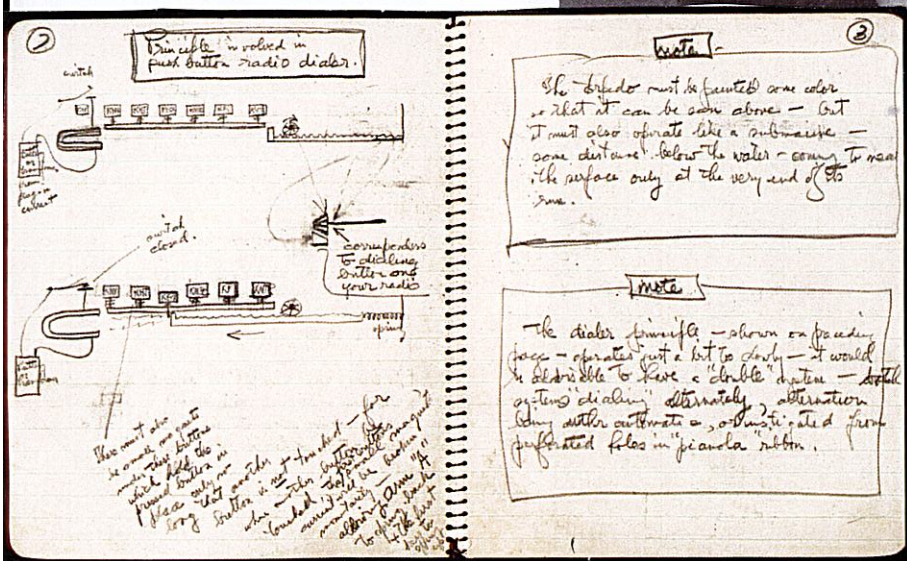 2
Principle involved in
push button radio dialer.
switch
from
plug in
current
switch
closed.
corresponds
to dialing
button on
your radio
spring
There must also
be small magnets
under these buttons
which hold the
pressed button in
place only so
long that another
button is not touched — for
when another button is
touched the
current will be broken
momentarily —
allowing arm "A"
to spring back
3
note
The torpedo must be painted some color
so that it can be seen above — but
it must also operate like a submarine —
some distance below the water — coming to near
the surface only at the very end of its
run.
note
The dialer principle — shown on preceding
page — operates just a bit to slowly — it would
be advisable to have a "double" system — both
systems "dialing" alternately, alternation
being either automatic, or instigated from
perforated holes in "pianola" ribbon.